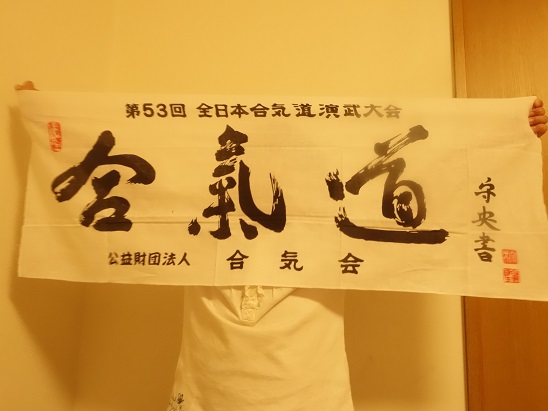 第53回 全日本合気道演武大会
合氣道
守央書
公益財団法人 合気会